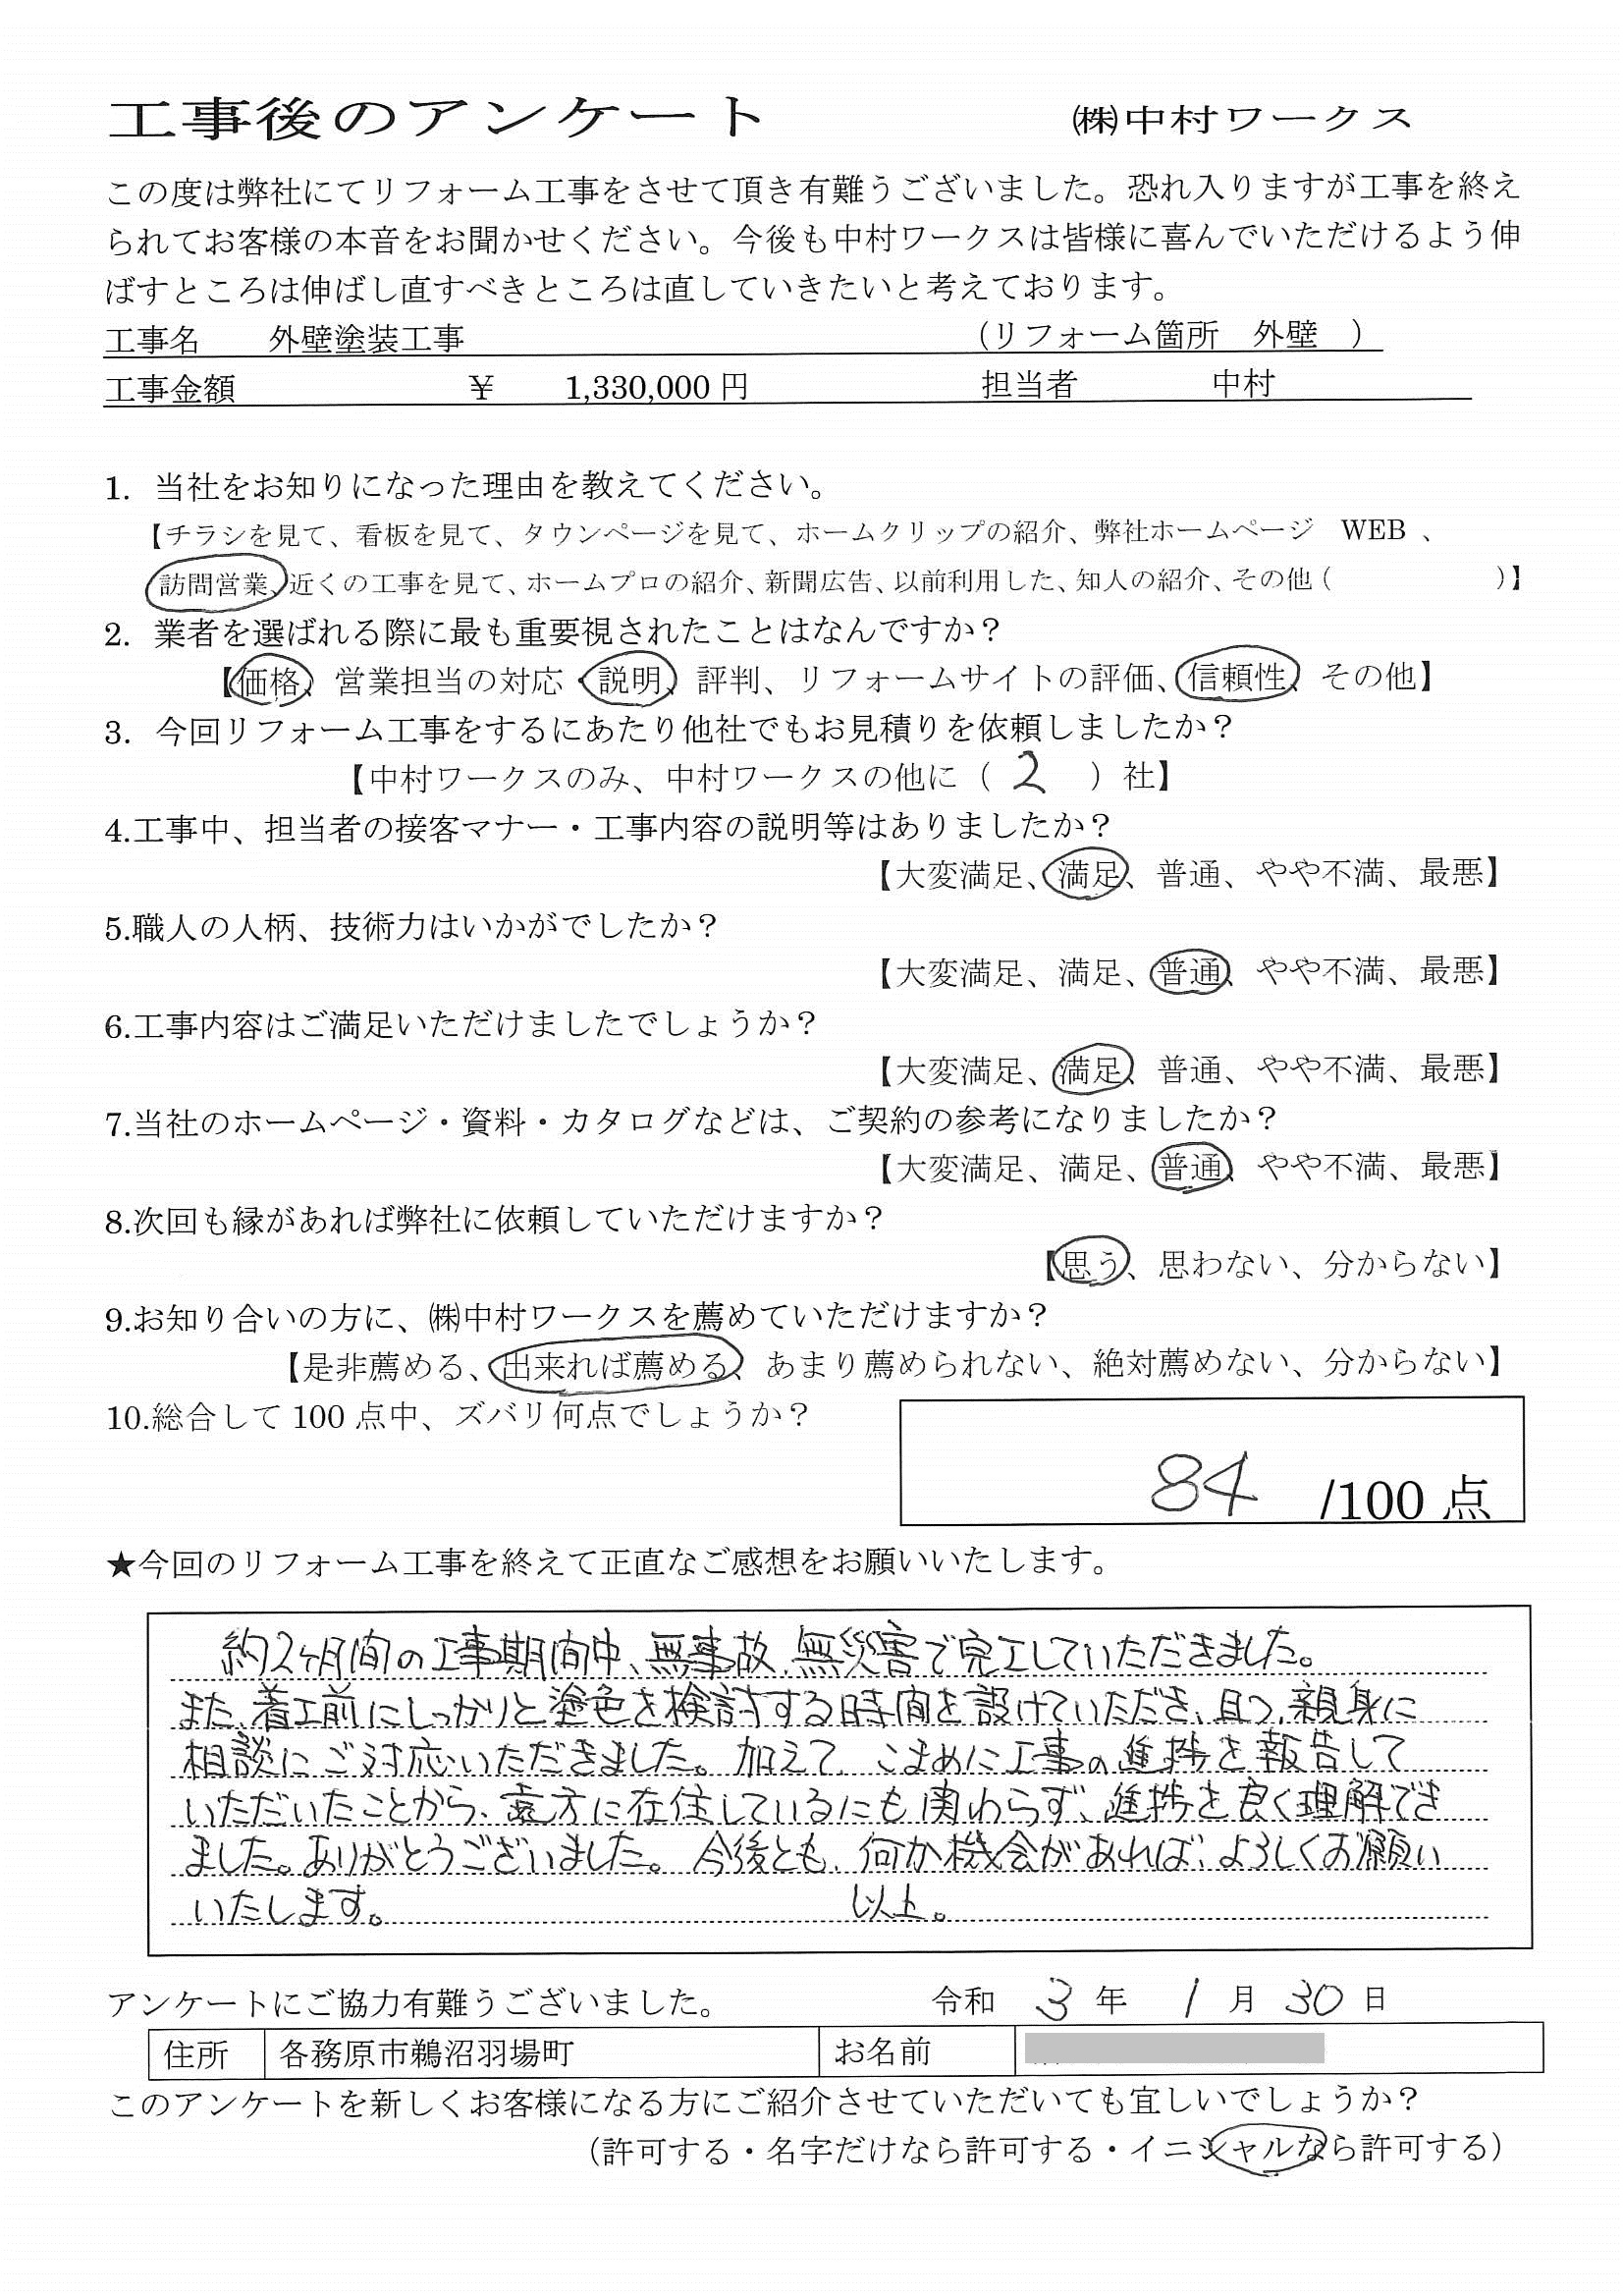 工事後のアンケート　㈱中村ワークス
この度は弊社にてリフォーム工事をさせて頂き有難うございました。恐れ入りますが工事を終え
られてお客様の本音をお聞かせください。今後も中村ワークスは皆様に喜んでいただけるよう伸
ばすところは伸ばし直すべきところは直していきたいと考えております。
工事名　外壁塗装工事　（リフォーム箇所　外壁　）
工事金額　￥　1,330,000 円　担当者　中村
1. 当社をお知りになった理由を教えてください。
【チラシを見て、看板を見て、タウンページを見て、ホームクリップの紹介、弊社ホームページ　WEB 、
訪問営業、近くの工事を見て、ホームプロの紹介、新聞広告、以前利用した、知人の紹介、その他（　　　）】
2. 業者を選ばれる際に最も重要視されたことはなんですか？
【価格、営業担当の対応・説明、評判、リフォームサイトの評価、信頼性、その他】
3. 今回リフォーム工事をするにあたり他社でもお見積りを依頼しましたか？
【中村ワークスのみ、中村ワークスの他に（ 2 ）社】
4.工事中、担当者の接客マナー・工事内容の説明等はありましたか？
【大変満足、満足、普通、やや不満、最悪】
5.職人の人柄、技術力はいかがでしたか？
【大変満足、満足、普通、やや不満、最悪】
6.工事内容はご満足いただけましたでしょうか？
【大変満足、満足、普通、やや不満、最悪】
7.当社のホームページ・資料・カタログなどは、ご契約の参考になりましたか？
【大変満足、満足、普通、やや不満、最悪】
8.次回も縁があれば弊社に依頼していただけますか？
【思う、思わない、分からない】
9.お知り合いの方に、㈱中村ワークスを薦めていただけますか？
【是非薦める、出来れば薦める、あまり薦められない、絶対薦めない、分からない】
10.総合して 100 点中、ズバリ何点でしょうか？
84 /100 点
★今回のリフォーム工事を終えて正直なご感想をお願いいたします。
約2ヶ月間の工事期間中、無事故、無災害で完工していただきました。
また、着工前にしっかりと塗色を検討する時間を設けていただき、且つ、親身に
相談にご対応いただきました。加えて、こまめに工事の進捗を報告して
いただいたことから、遠方に在住しているにも関わらず、進捗を良く理解でき
ました。ありがとうございました。今後とも、何か機会があれば、よろしくお願い
いたします。　以上。
アンケートにご協力有難うございました。　令和 3 年 1 月 30 日
住所　各務原市鵜沼羽場町　お名前
このアンケートを新しくお客様になる方にご紹介させていただいても宜しいでしょうか？
（許可する・名字だけなら許可する・イニシャルなら許可する）